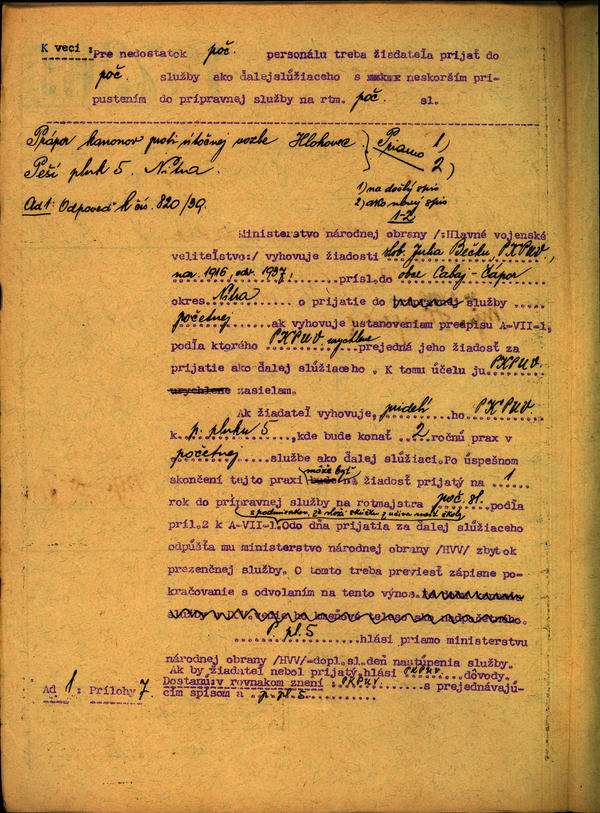 K veci : Pre nedostatok poč. personálu treba žiadateľa prijať do
poč. služby ako ďalejslúžiaceho s neskorším pri-
pustením do prípravnej služby na rtm. poč. sl.
Prápor kanonov proti útočnej vozbe Hlohovec } Priamo 1)
Peší pluk 5. Nitra. 2)
1) na došlý spis
Ad 1: Odpoveď k čís. 820/39. 2) ako nový spis
1-2
Ministerstvo národnej obrany /:Hlavné vojenské
veliteľstvo:/ vyhovuje žiadosti slob. Julia Bečku, PKPUV,
nar. 1916, odv. 1937, prísl.do obce Cabaj-Čápor
okres. Nitra o prijatie do prípravnej služby
početnej ak vyhovuje ustanoveniam predpisu A-VII-1,
podľa ktorého PKPUV urychlene prejedná jeho žiadosť za
prijatie ako ďalej slúžiaceho . K tomu účelu ju PKPUV.
urychlene zasielam.
Ak žiadateľ vyhovuje, pridelí ho PKPUV.
k p. pluku 5, kde bude konať 2 ročnú prax v
početnej službe ako ďalej slúžiaci.Po úspešnom
môže byť
skončení tejto praxi bude na žiadosť prijatý na 1
rok do prípravnej služby na rotmajstra poč. sl. podľa
s podmienkou, že složí skúšku z učiva
príl.2 k A-VII-1.Odo dňa prijatia za ďalej slúžiaceho
odpúšťa mu ministerstvo národnej obrany /HVV/ zbytok
prezenčnej služby. O tomto treba previesť zápisne po-
kračovanie s odvolaním na tento výnos.
P. pl. 5 hlási priamo ministerstvu
národnej obrany /HVV/-dopl.sl.deň nastúpenia služby.
Ak by žiadateľ nebol prijatý hlási PKPUV. dôvody.
Dostanú:v rovnakom znení : PKPUV. s prejednávajú-
Ad 1 : Prílohy 7 cím spisom a p. pl. 5.